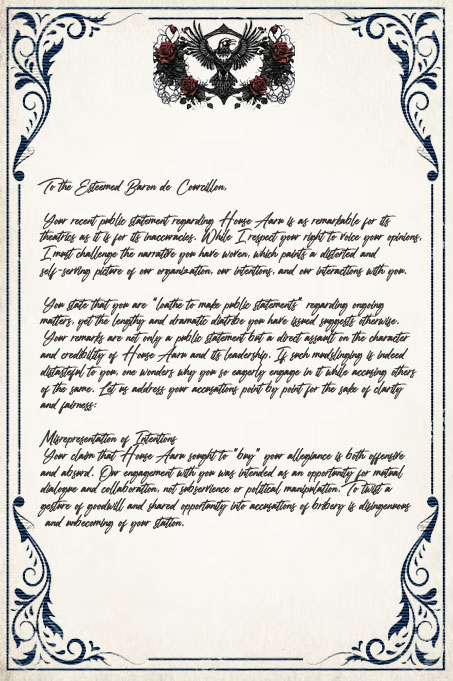 To the Esteemed Baron de Courcillon,
Your recent public statement regarding House Aaru is as remarkable for its
theatrics as it is for its inaccuracies. While I respect your right to voice your opinions,
I must challenge the narrative you have woven, which paints a distorted and
self-serving picture of our organization, our intentions, and our interactions with you.
You state that you are "loathe to make public statements" regarding ongoing
matters, yet the lengthy and dramatic diatribe you have issued suggests otherwise.
Your remarks are not only a public statement but a direct assault on the character
and credibility of House Aaru and its leadership. If such mudslinging is indeed
distasteful to you, one wonders why you so eagerly engage in it while accusing others
of the same. Let us address your accusations point by point for the sake of clarity
and fairness:
Misrepresentation of Intentions
Your claim that House Aaru sought to "buy" your allegiance is both offensive
and absurd. Our engagement with you was intended as an opportunity for mutual
dialogue and collaboration, not subservience or political manipulation. To twist a
gesture of goodwill and shared opportunity into accusations of bribery is disingenuous
and unbecoming of your station.